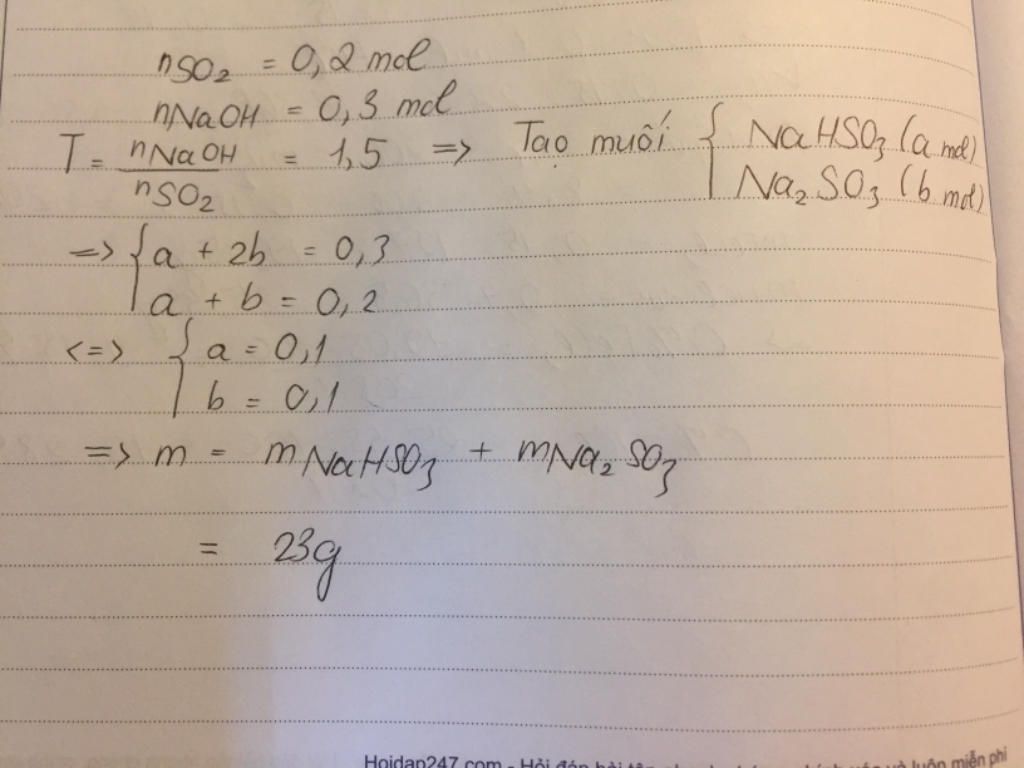 nSO₂ = 0,2 mol
nNaOH = 0,3 mol
T = nNaOH / nSO₂ = 1,5 => Tạo muối { NaHSO₃ (a mol)
Na₂SO₃ (b mol)
=> { a + 2b = 0,3
a + b = 0,2
<=> { a = 0,1
b = 0,1
=> m = mNaHSO₃ + mNa₂SO₃
= 23g
Hoidap247.com - Hỏi đáp bài tập và luôn miễn phí